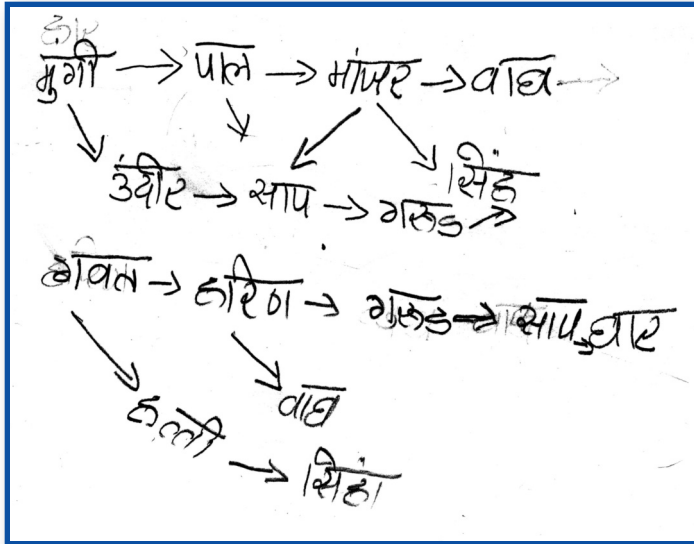 मुंगी → पाल → मांजर → वाघ →
उंदीर → साप → गरूड → सिंह
गवत → हरिण → गरूड → साप → घार
हत्ती → वाघ
→ सिंह।